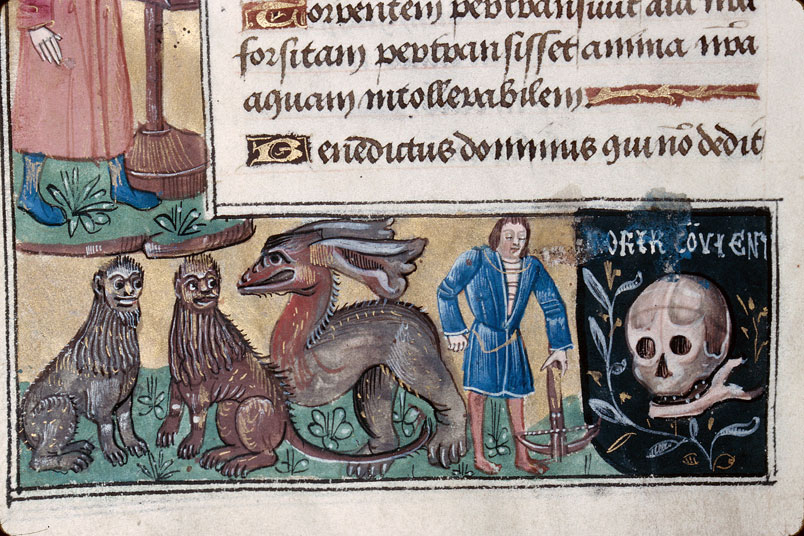 Torrentem pertransivit aīa nr̄a
forsitam pertransisset amima nr̄a
aquam intollerabilem
Benedictus dominus qui nō dedit
ORIR COVIENT